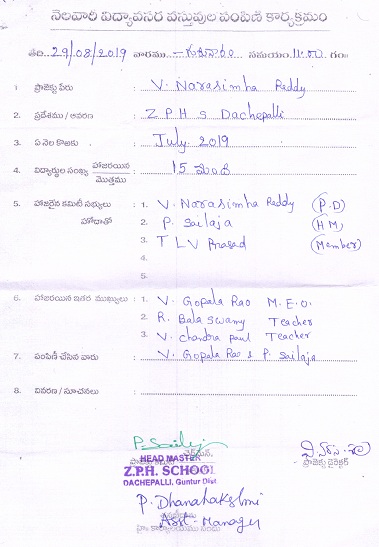 నెలవారి విద్యావసర వస్తువుల పంపిణీ కార్యక్రమం
తేది. 29/08/2019 వారము - గురువారం సమయం. 11.00 గం
1 ప్రాజెక్టు పేరు V. Narasimha Reddy
2. ప్రదేశము / ఆవరణ Z P H S Dachepalli
3. ఏ నెల కొరకు July. 2019
4. విద్యార్థుల సంఖ్య హాజరయిన / మొత్తము 15 మంది
5. హాజరైన కమిటీ సభ్యులు 1. V. Narasimha Reddy (P.D)
హోదాతో 2. P. Sailaja (HM)
3. T L V Prasad (Member)
4.
5.
6. హాజరయిన ఇతర ముఖ్యులు : 1. V. Gopala Rao M.E.O.
2. R. Bala Swamy Teacher
3. V. Chandra paul Teacher
7. పంపిణీ చేసిన వారు : V. Gopala Rao & P. Sailaja
8. వివరణ / సూచనలు :
P. Sailaja
HEAD MASTER
ప్రాజెక్టు డైరెక్టర్
Z.P.H. SCHOOL
DACHEPALLI, Guntur Dist
P. Dhanalakshmi
Asst. Manager